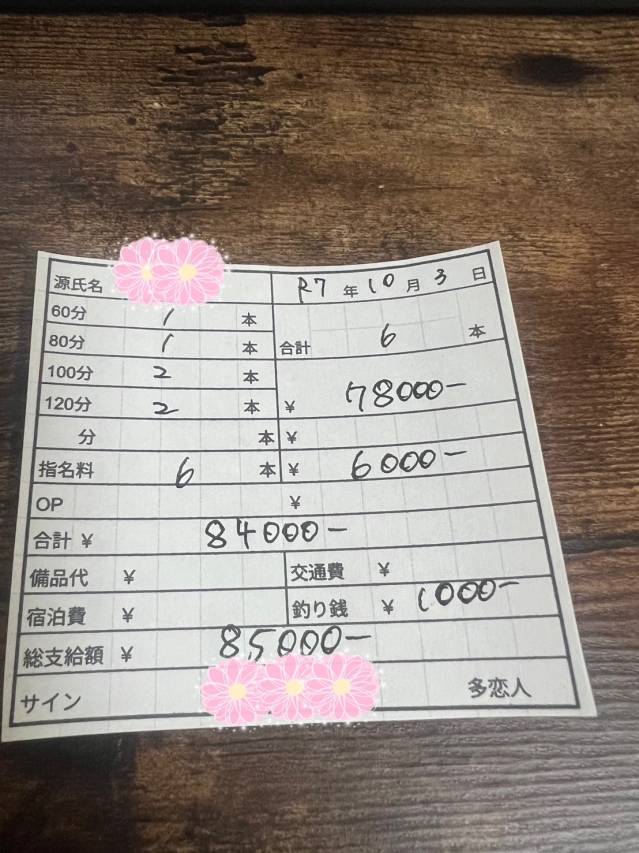 源氏名
R7 年 10 月 3 日
60分 1 本
80分 1 本
合計 6 本
100分 2 本
120分 2 本 ¥ 78000-
分 本 ¥
指名料 6 本 ¥ 6000-
OP ¥
合計 ¥ 84000-
備品代 ¥ 交通費 ¥
宿泊費 ¥ 釣り銭 ¥ 1000-
総支給額 ¥ 85000-
サイン 多恋人